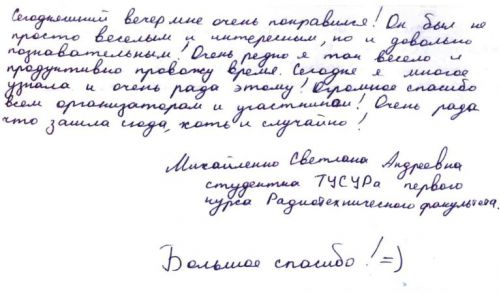 Сегодняшний вечер мне очень понравился! Он был не
просто веселым и интересным, но и довольно
познавательным! Очень редко я так весело и
продуктивно провожу время. Сегодня я многое
узнала и очень рада этому! Огромное спасибо
всем организаторам и участникам! Очень рада
что зашла сюда, хоть и случайно!
Михайленко Светлана Андреевна
студентка ТУСУРа первого
курса Радиотехнического факультета.
Большое спасибо! =)